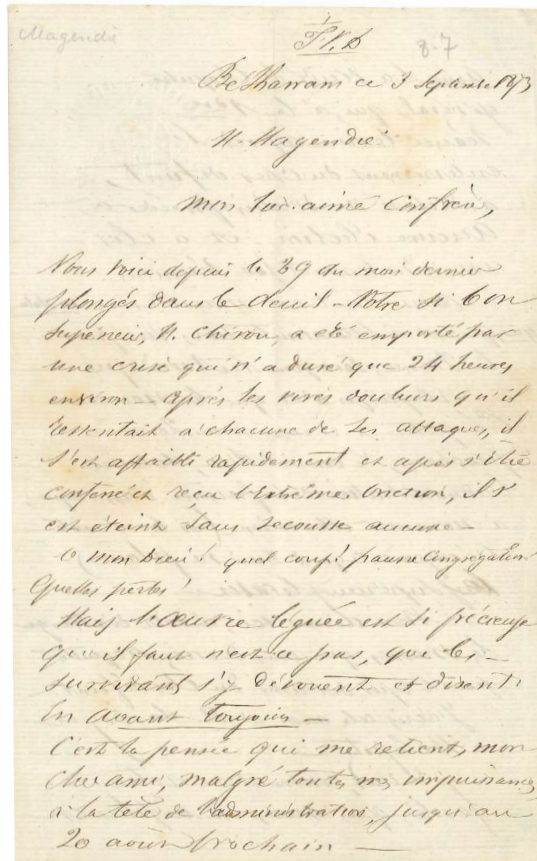 Magendie
F.V.D
8.7
Betharram ce 3 Septembre 1873
M. Magendie
Mon bien aimé Confrère,
Nous voici depuis le 29 du mois dernier
plongés dans le deuil - Notre si bon
Supérieur, M. Chirou, a été emporté par
une crise qui n'a duré que 24 heures
environ. Après les vives douleurs qu'il
ressentait à chacune de ses attaques, il
s'est affaibli rapidement et après s'être
confessé et reçu l'extrême. onction, il s'
est éteint sans secousse aucune
O mon Dieu! quel coup! pauvre Congrégation
Quelles pertes!
Mais l'Œuvre léguée est si précieuse
qu'il faut n'est ce pas, que les -
survivants s'y dévouent et disent:
En avant toujours —
C'est la pensée qui me retient, mon
cher ami, malgré toutes mes impuissances
à la tête de l'administration, jusqu'au
20 août prochain —